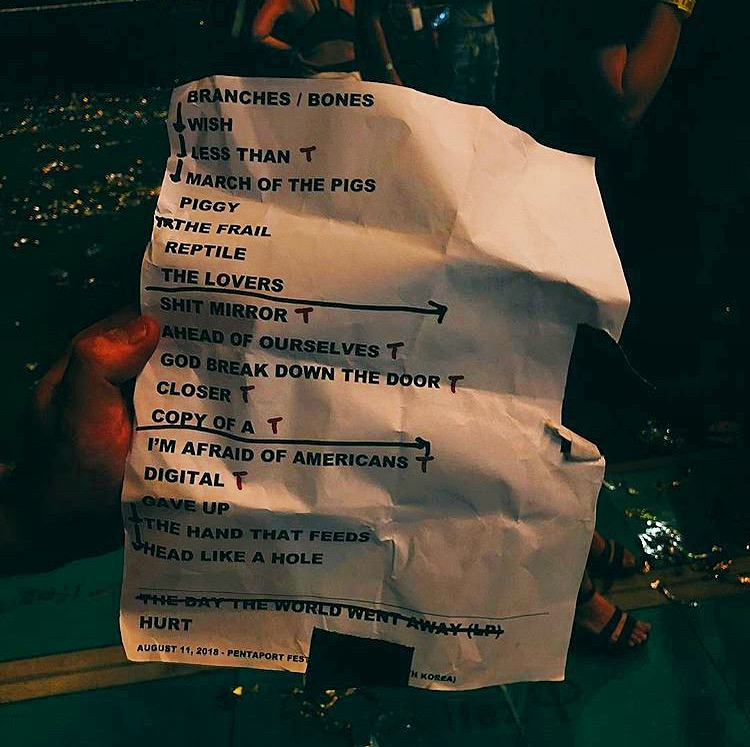 BRANCHES / BONES
WISH
LESS THAN T
MARCH OF THE PIGS
PIGGY
THE FRAIL
REPTILE
THE LOVERS
SHIT MIRROR T
AHEAD OF OURSELVES T
GOD BREAK DOWN THE DOOR T
CLOSER T
COPY OF A T
I'M AFRAID OF AMERICANS T
DIGITAL T
GAVE UP
THE HAND THAT FEEDS
HEAD LIKE A HOLE
THE DAY THE WORLD WENT AWAY (LP)
HURT
AUGUST 11, 2018 - PENTAPORT FEST H KOREA)